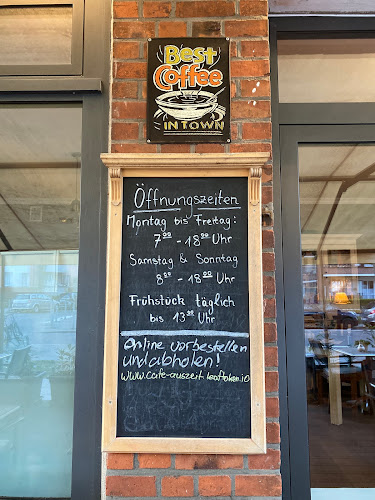 Best
Coffee
IN TOWN
Öffnungszeiten
Montag bis Freitag:
7⁰⁰ - 18⁰⁰ Uhr
Samstag & Sonntag
8⁰⁰ - 18⁰⁰ Uhr
Frühstück täglich
bis 13³⁰ Uhr
Online vorbestellen
und abholen!
www.cafe-auszeit.